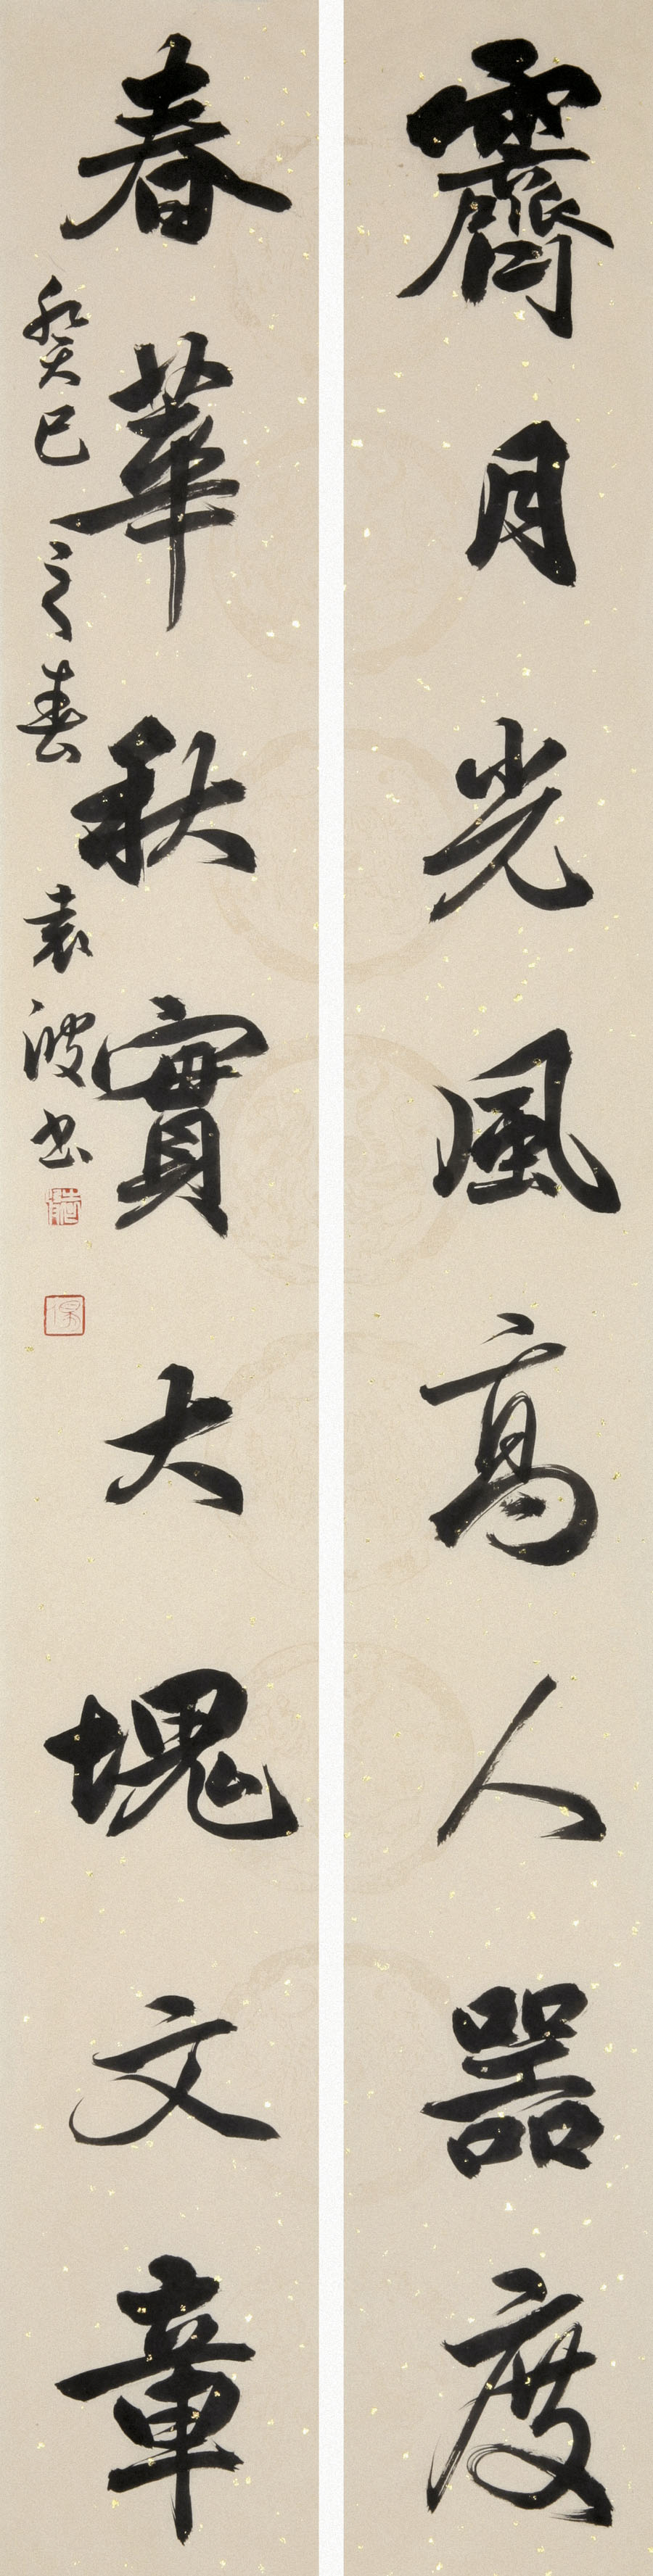 霽月光風高人器度
春華秋實大塊文章
癸巳之春 袁波書